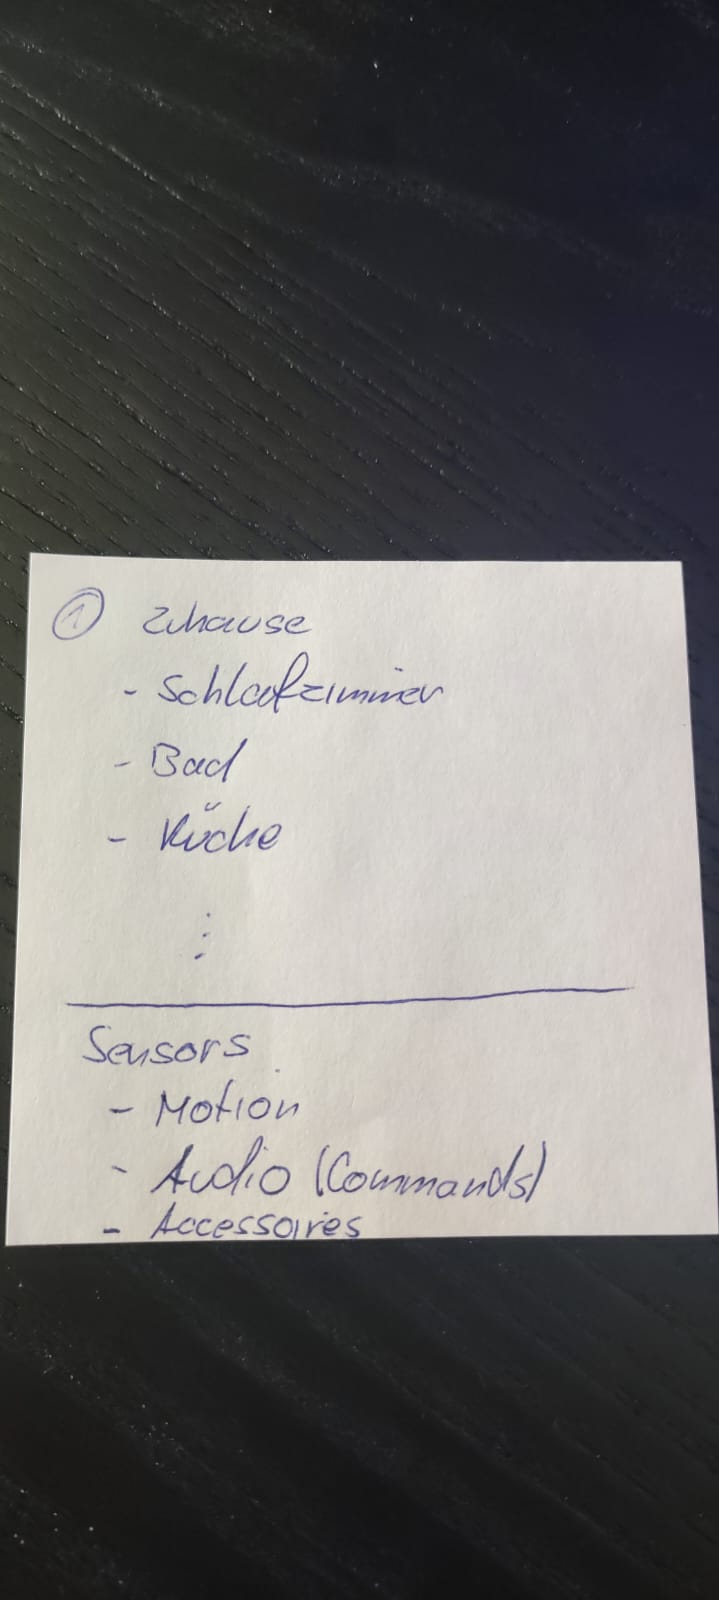 ① Zuhause
- Schlafzimmer
- Bad
- Küche
⋮
Sensors
- Motion
- Audio (Commands)
- Accessoires